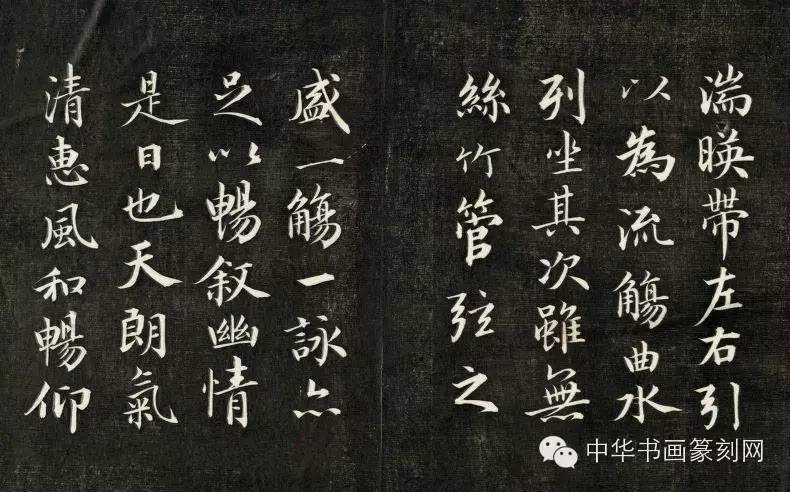 湍暎帶左右引
以為流觴曲水
列坐其次雖無
絲竹管弦之
盛一觴一詠亦
足以暢敘幽情
是日也天朗氣
清惠風和暢仰
中华书画篆刻网